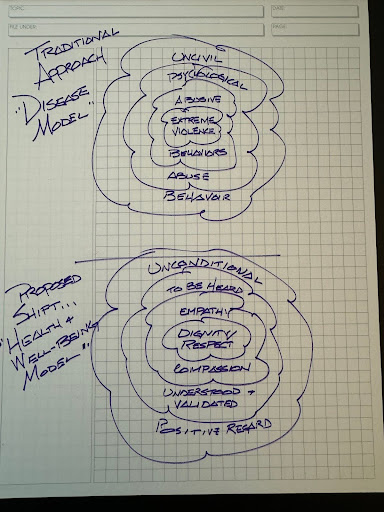 TOPIC:
DATE:
FILE UNDER:
PAGE:
TRADITIONAL
APPROACH
"DISEASE
MODEL"
UNCIVIL
PSYCHOLOGICAL
ABUSIVE
EXTREME
VIOLENCE
BEHAVIORS
ABUSE
BEHAVIOR
PROPOSED
SHIFT...
"HEALTH &
WELL-BEING
MODEL"...
UNCONDITIONAL
TO BE HEARD
EMPATHY
DIGNITY/
RESPECT
COMPASSION
UNDERSTOOD +
VALIDATED
POSITIVE REGARD